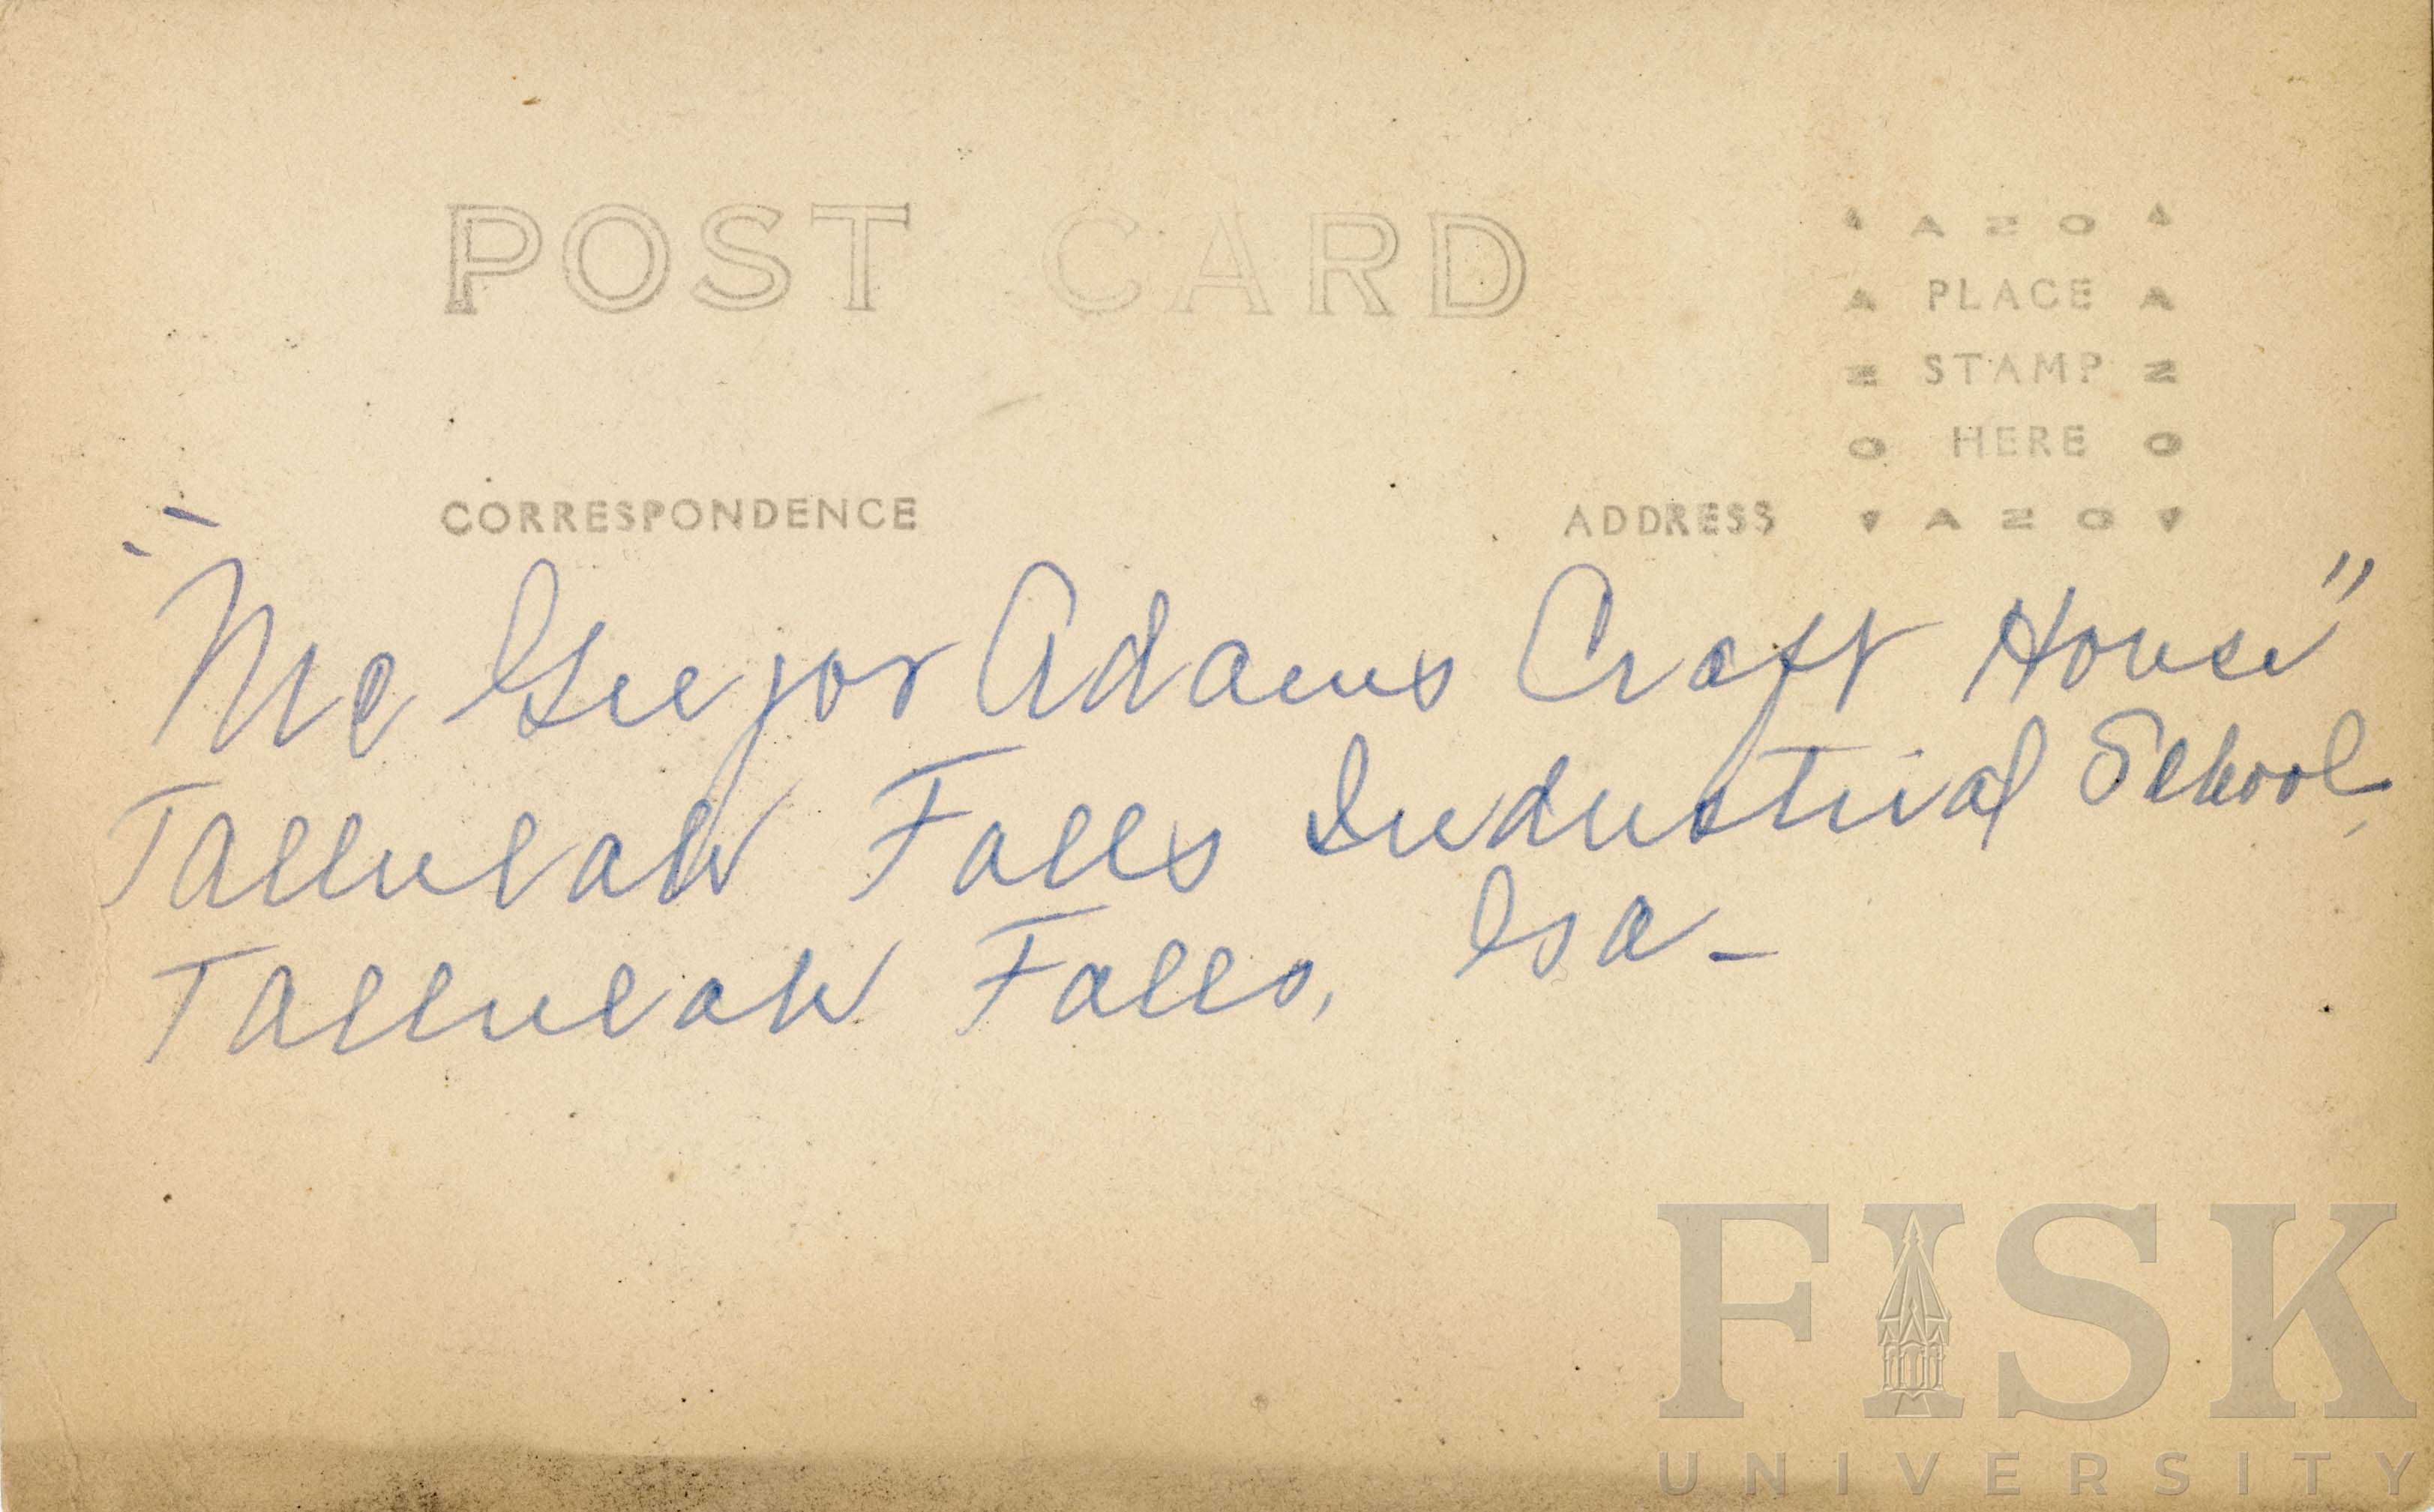 POST CARD
AZO
PLACE
STAMP
HERE
AZO
CORRESPONDENCE ADDRESS
"Mc Greegor Adams Craft House"
Tallulah Falls Industrial School,
Tallulah Falls, Ga-
FISK
UNIVERSITY